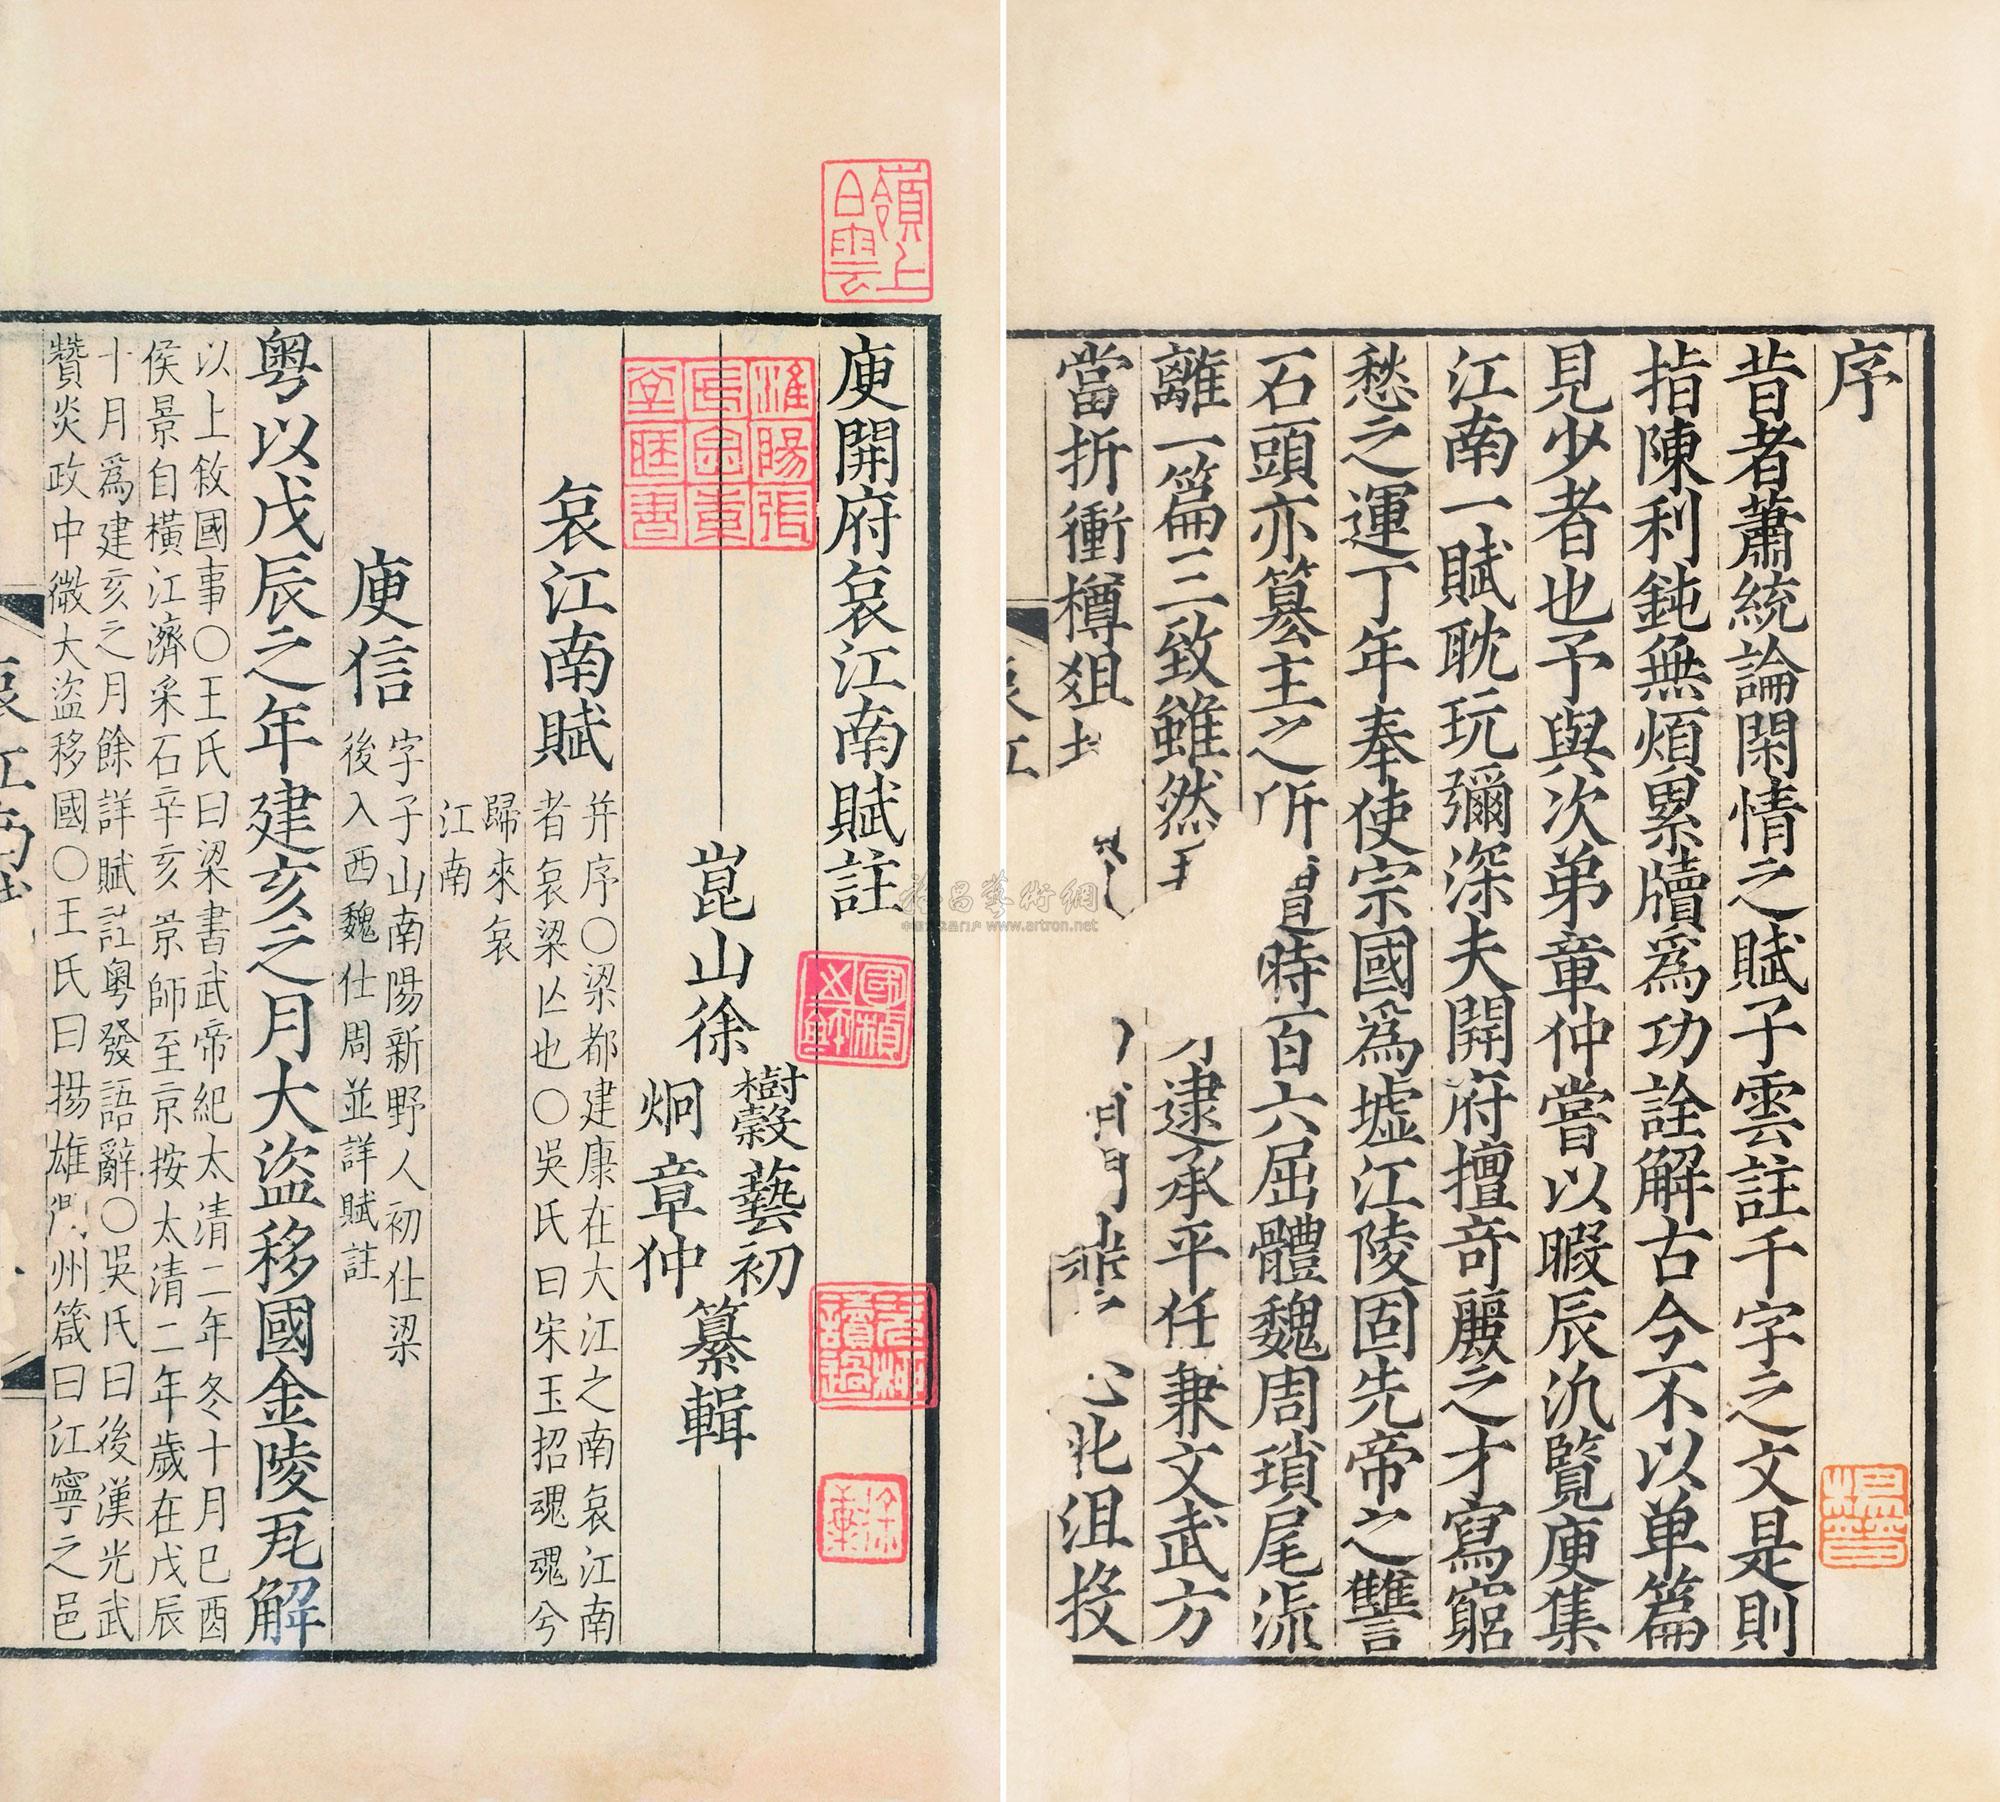 序
昔者蕭統論閑情之賦子雲註千字之文是則
指陳利鈍無煩累牘為功詮解古今不以单篇
見少者也予與次弟章仲嘗以暇辰汎覽庾集
江南一賦耽玩彌深夫開府擅奇麗之才寫窮
愁之運丁年奉使宗國為墟江陵固先帝之讐
石頭亦簒主之所 時百六屈體魏周瑣尾流
離一篇三致雖然 逮承平任兼文武方
當折衝樽俎 北沮投
嶺上白雲
庾開府哀江南賦註
崑山徐
樹穀藝初
炯章仲
纂輯
哀江南賦
并序○梁都建康在大江之南哀江南
者哀梁亾也○吳氏曰宋玉招魂魂兮
歸來哀
江南
庾信
字子山南陽新野人初仕梁
後入西魏仕周並詳賦註
粤以戊辰之年建亥之月大盜移國金陵瓦解
以上敘國事○王氏曰梁書武帝紀太清二年冬十月己酉
侯景自橫江濟采石辛亥景師至京按太清二年歲在戊辰
十月為建亥之月餘詳賦註粤發語辭○吳氏曰後漢光武
贊炎政中微大盜移國○王氏曰揚雄 州箴曰江寧之邑
哀江
www.artron.net